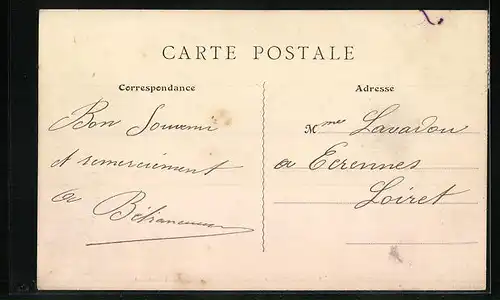 CARTE POSTALE
Correspondance
Bon Souvenir
et remerciement
a
Adresse
Mmes Lavadou
a Ecrennes
Loiret